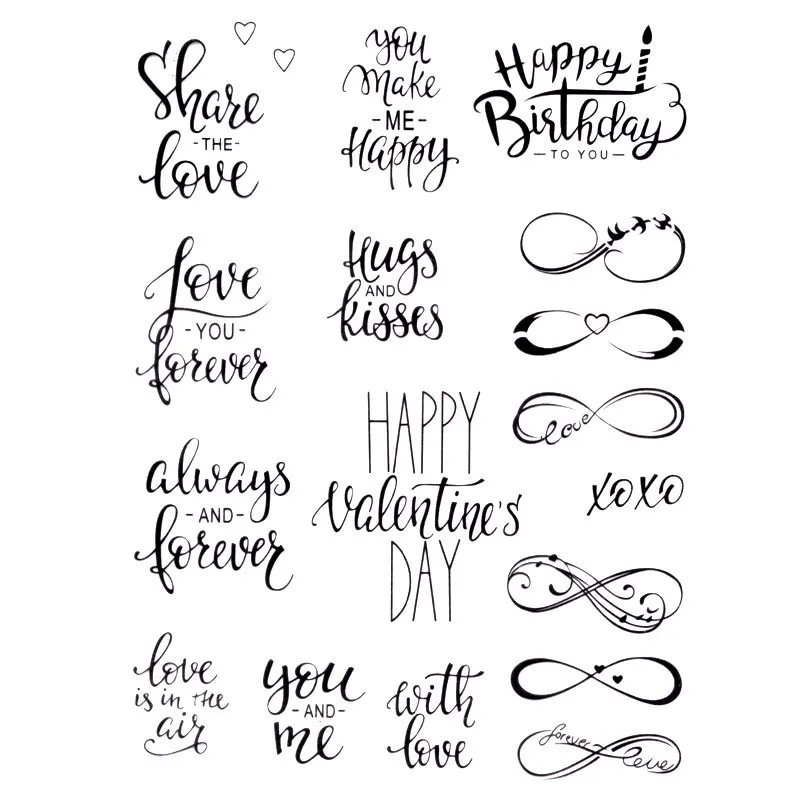 Share
-THE-
love
you
Make
-ME-
Happy
Happy
Birthday
—TO YOU—
Love
-YOU-
forever
Hugs
AND
kisses
love
always
-AND-
forever
HAPPY
Valentine's
DAY
xoxo
love
is in the
air
you
-AND-
me
with
love
forever
love